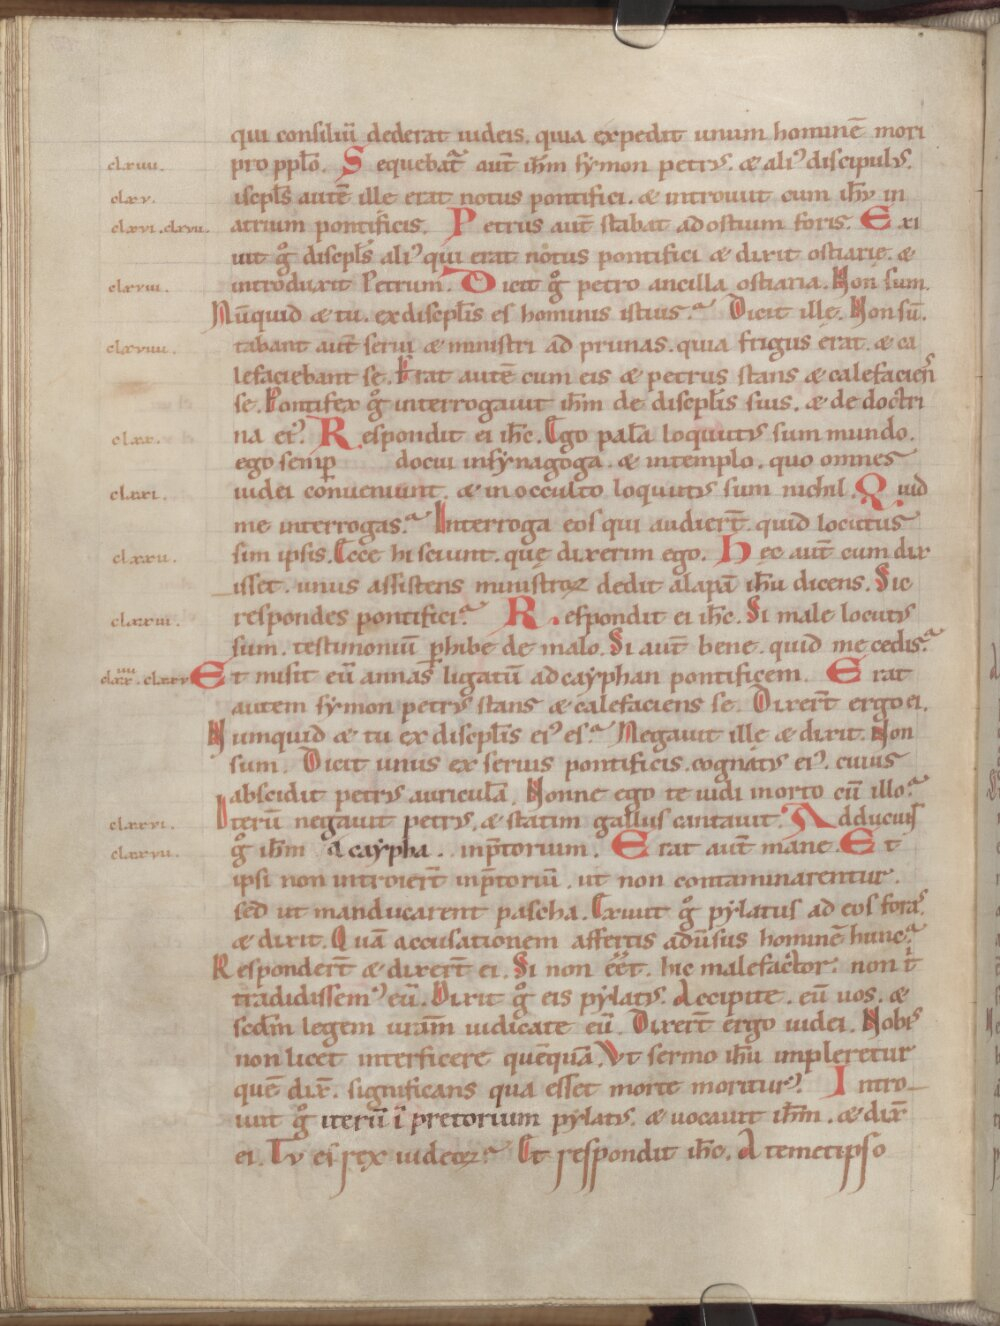 qui consiliū dederat iudeis. quia expedit unum hominē mori
clxiiii. pro pplo. Sequebat aut ihm symon petrus. & ali' discipulus.
clxv. iscpls autē ille erat notus pontifici. & introiuit cum ihu in
clxvi. clxvii. atrium pontificis. Petrus aut stabat ad ostium foris. Exi
uit g discpls ali' qui erat notus pontifici & dixit ostiarię. &
clxviii. introduxit Petrum. Dicit g petro ancilla ostiaria. Non sum.
Nūquid & tu. ex discplis es hominis istius? Dicit ille. Non sū.
clxviiii. tabant aut serui & ministri ad prunas. quia frigus erat. & ca
lefaciebant se. Erat autē cum eis & petrus stans & calefacien
se. Pontifex g interrogauit ihm de discplis suis. & de doctri
clxx. na ei'. Respondit ei ihc. Ego pala loquutus sum mundo.
ego semp docui in synagoga. & in templo. quo omnes
clxxi. iudei conueniunt. & in occulto loquutus sum nichil. Quid
me interrogas? Interroga eos qui audiert. quid locutus
clxxii. sim ipsis. Ecce hi sciunt. quę dixerim ego. Hęc aut cum dix
isset. unus assistens ministror dedit alapā ihu dicens. Sic
clxxiii. respondes pontifici? Respondit ei ihc. Si male locutus
sum. testimoniū phibe de malo. Si aut bene. quid me cedis?
clxxiiii. clxxv Et misit eū annas ligatū ad cayphan pontificem. Erat
autem symon petrus stans & calefaciens se. Dixert ergo ei.
Numquid & tu ex discplis ei' es? Negauit ille & dixit. Non
sum. Dicit unus ex seruis pontificis. cognatus ei'. cuius
abscidit petrus auriculā. Nonne ego te uidi in orto cū illo?
clxxvi. Iterū negauit petrus. & statim gallus cantauit. Adducus
clxxvii. g ihm a caypha. in ptorium. Erat aut mane. Et
ipsi non introiert in ptoriū. ut non contaminarentur.
sed ut manducarent pascha. Exiuit g pylatus ad eos foras.
& dixit. Quā accusationem affertis adūsus hominē hunc?
Respondert & dixert ei. Si non eet. hic malefactor. non t
tradidissem' eū. Dixit g eis pylatus. Accipite. eū uos. &
scdm legem uram iudicate eū. Dixert ergo iudei. Nobis
non licet interficere quēquā. Vt sermo ihu impleretur
quē dix. significans qua esset morte moritur'. Intro
iuit g iterū ī pretorium pylatus. & uocauit ihm. & dix
ei. Tu es rex iudeor? Et respondit ihc. A temetipso